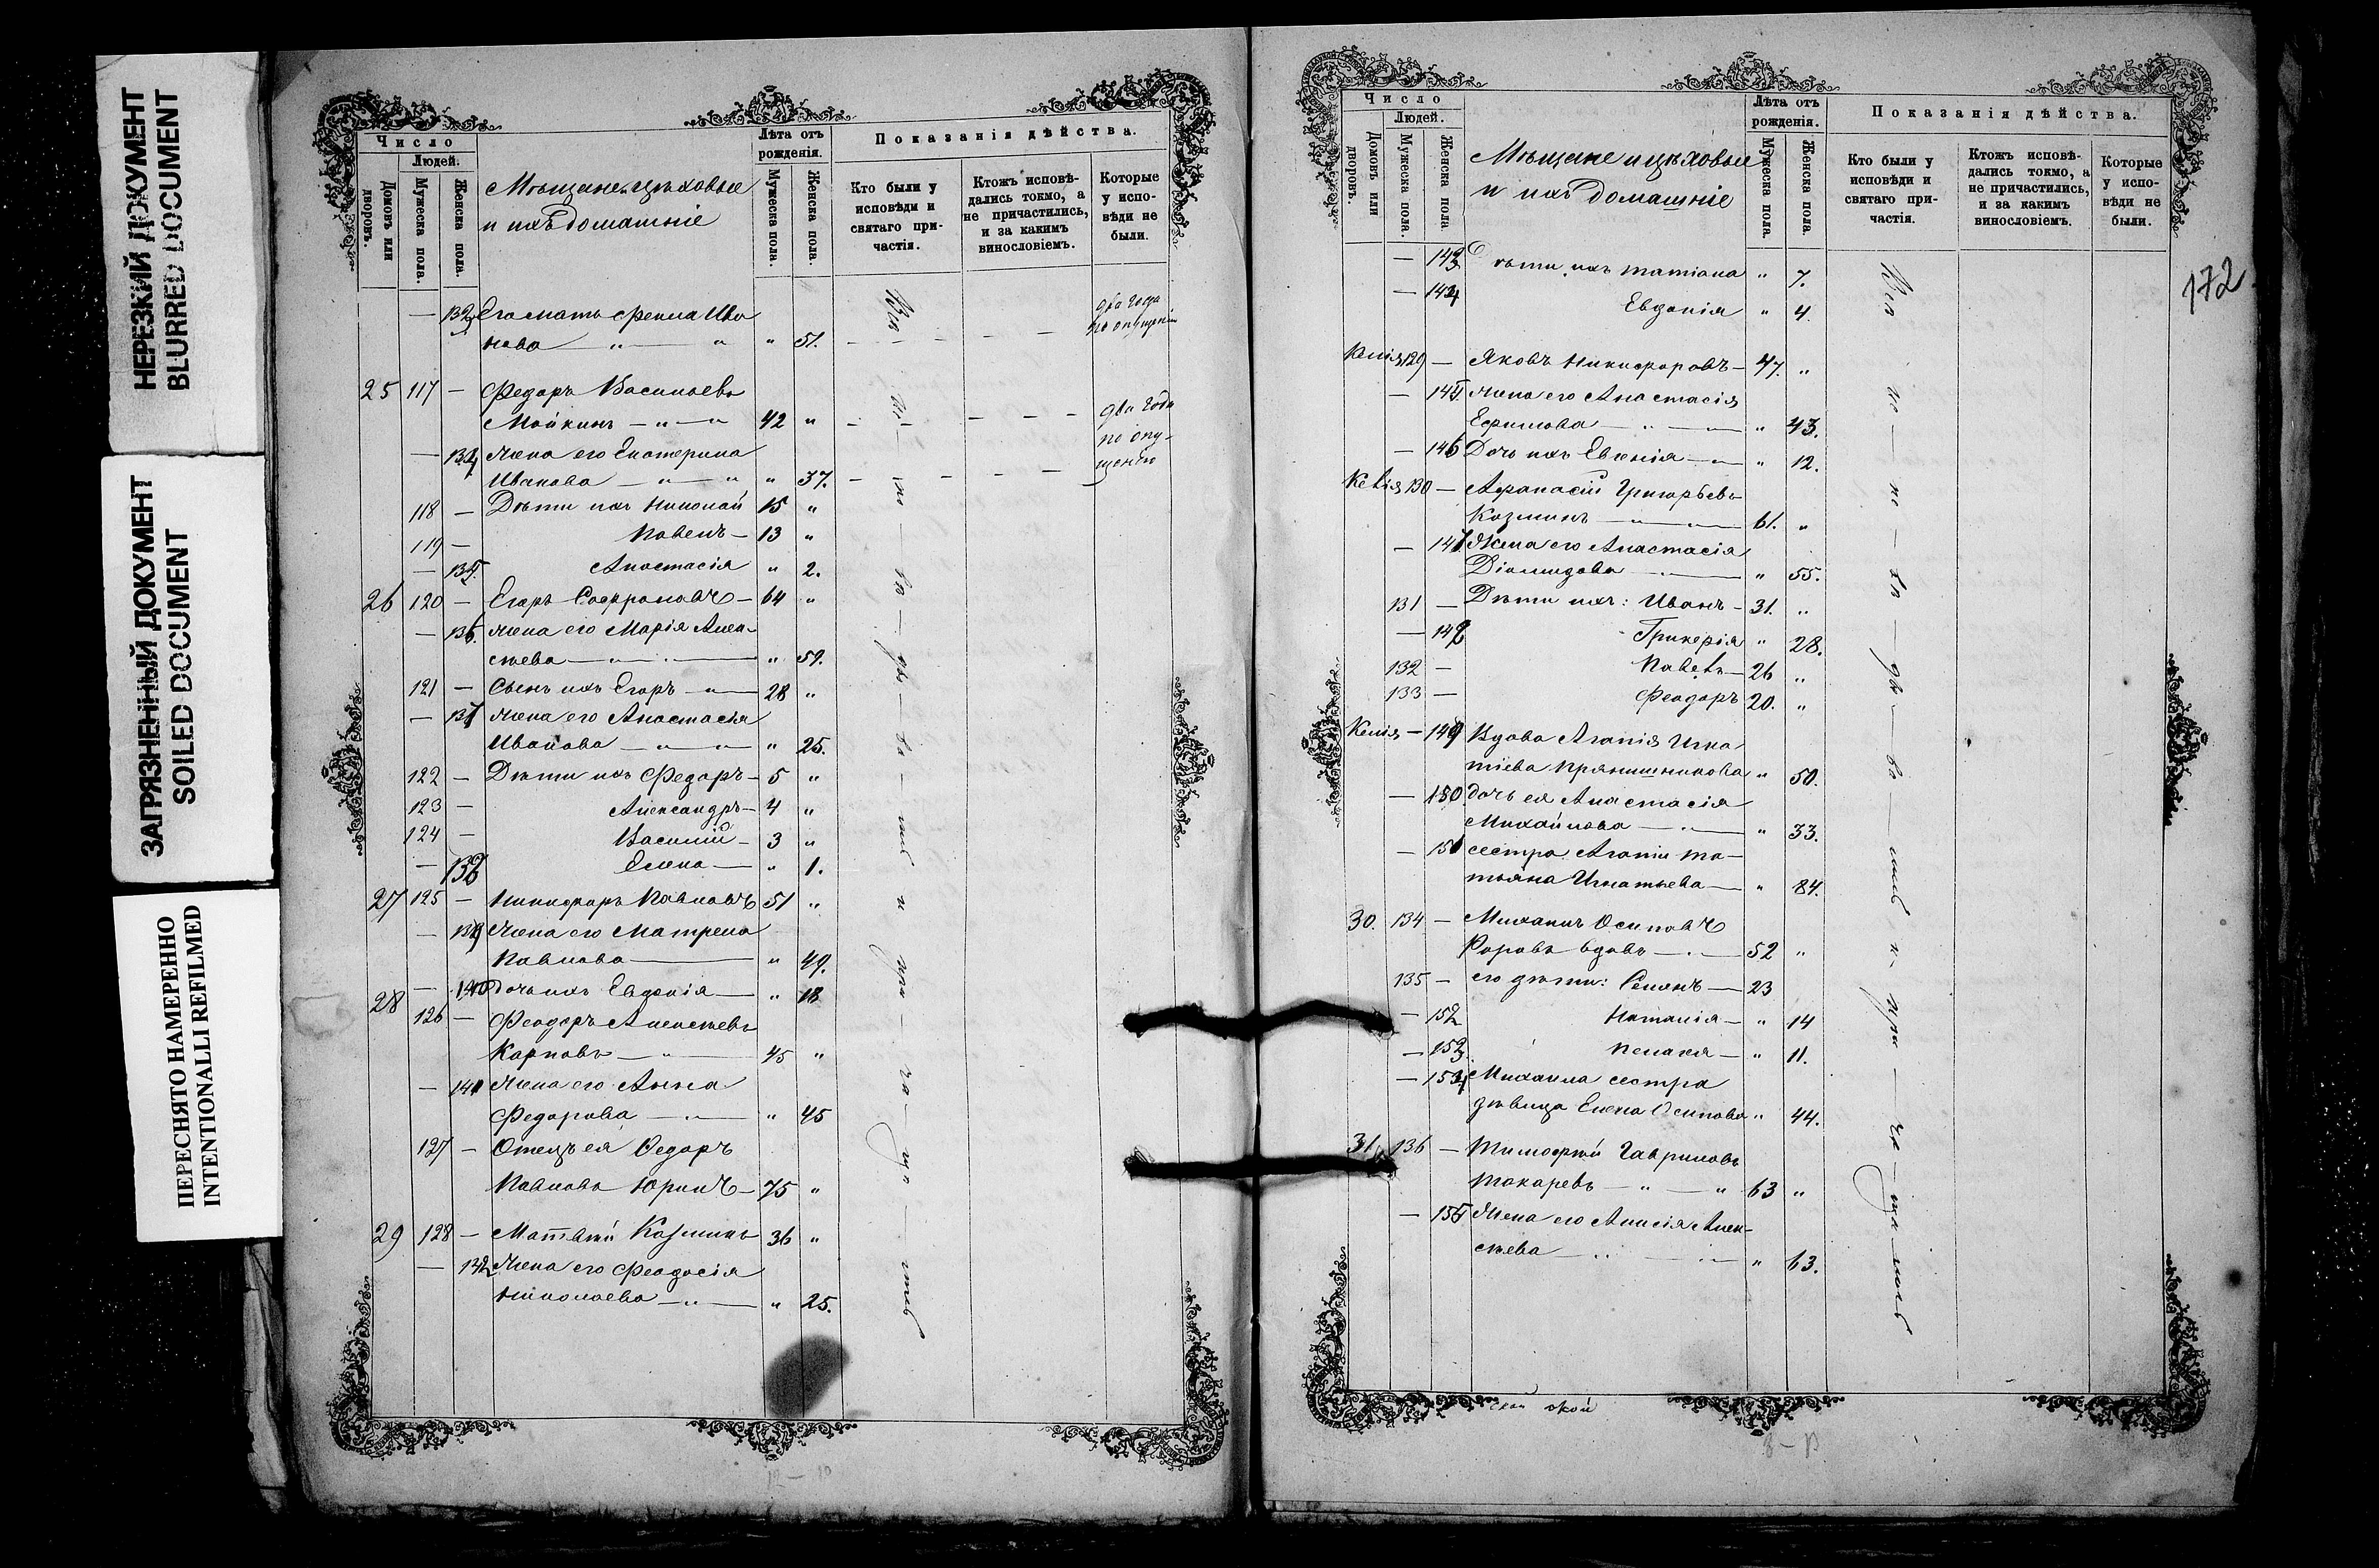 НЕРЕЗКИЙ ДОКУМЕНТ
BLURRED DOCUMENT
ЗАГРЯЗНЕННЫЙ ДОКУМЕНТ
SOILED DOCUMENT
ПЕРЕСНЯТО НАМЕРЕННО
INTENTIONALLI REFILMED
Число
Людей.
Домовъ или дворовъ.
Мужеска пола.
Женска пола.
Мѣщане и цѣховые
и ихъ домашніе
Лѣта отъ рожденія.
Мужеска пола.
Женска пола.
Показанія дѣйства.
Кто были у исповѣди и святаго причастія.
Ктожъ исповѣдались токмо, а не причастились, и за какимъ винословіемъ.
Которые у исповѣди не были.
— 133 Его мать Фекла Ива
нова — " — " " 51.
два года
по опущенію
25 117 — Федоръ Васильевъ
Мойкинъ — " — " 42 "
два года
по опу-
щенію
— 134 Жена его Екатерина
Иванова — " — " " 37.
118 — Дѣти ихъ Николай 15 "
119 — Павелъ — 13 "
— 135. Анастасія " 2.
26 120 — Егоръ Софроновъ — 64 "
— 136. Жена его Марія Алек-
сѣева — " 59.
121 — Сынъ ихъ Егоръ — " — 28 "
— 137 Жена его Анастасія
Иванова — " — " " 25.
122 — Дѣти ихъ Федоръ — 5 "
123 — Александръ — 4 "
124 — Василій — 3 "
— 138 Елена — " 1.
27 125 — Никифоръ Павловъ 51 "
— 139 Жена его Матрена
Павлова — " 49.
— 140 Дочь ихъ Евдокія — " 18
28 126 — Феодоръ Алексѣевъ
Карповъ — " — 45 "
— 141 Жена его Анна
Федорова — " — " 45
127 — Отецъ ея Ѳедоръ
Павловъ Юринъ — 75 "
29 128 — Матвѣй Козминъ 36 "
— 142 Жена его Феодосія
Николаева — " — " 25.
Число
Людей.
Домовъ или дворовъ.
Мужеска пола.
Женска пола
Мѣщане и цѣховые
и ихъ домашніе
Лѣта отъ рожденія.
Мужеска пола
Женска пола.
Показанія дѣйства.
Кто были у исповѣди и святаго причастія.
Ктожъ исповѣдались токмо, а не причастились, и за какимъ винословіемъ.
Которые у исповѣди не были.
172
— 143 Дѣти ихъ Татіана " 7.
— 144 Евдокія " 4.
Келія 129 — Яковъ Никифоровъ — 47. "
— 145 Жена его Анастасія
Ефимова — " — " 43.
— 146 Дочь ихъ Евгенія — " — " 12.
Келія 130 — Афанасій Григорьевъ
Козминъ — " — 61. "
— 147 Жена его Анастасія
Діомидова — " 55.
131 — Дѣти ихъ: Иванъ — 31. "
— 148 Гликерія " 28.
132 — Павелъ — 26 "
133 — Феодоръ 20. "
Келія — 149 Вдова Агапія Игна
тіева Прянишникова " 50.
— 150 дочь ея Анастасія
Михайлова — " — " 33.
— 151 сестра Агапіи Та-
тьяна Игнатьева — " 84.
30. 134 — Михаилъ Осиповъ
вдовъ — " — 52 "
135 — его дѣти: Семенъ — 23
— 152 Наталія — " 14
— 153. Пелагея — " 11.
— 154 Михаила сестра
дѣвица Елена Осипова " 44.
31. 136 — Тимофѣй Гавриловъ
Токаревъ — " — " 63 "
— 155 Жена его Анисія Алек-
сѣева — " " 63.